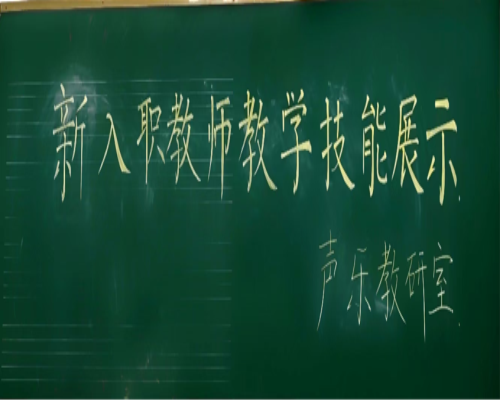 新入职教师教学技能展示
声乐教研室